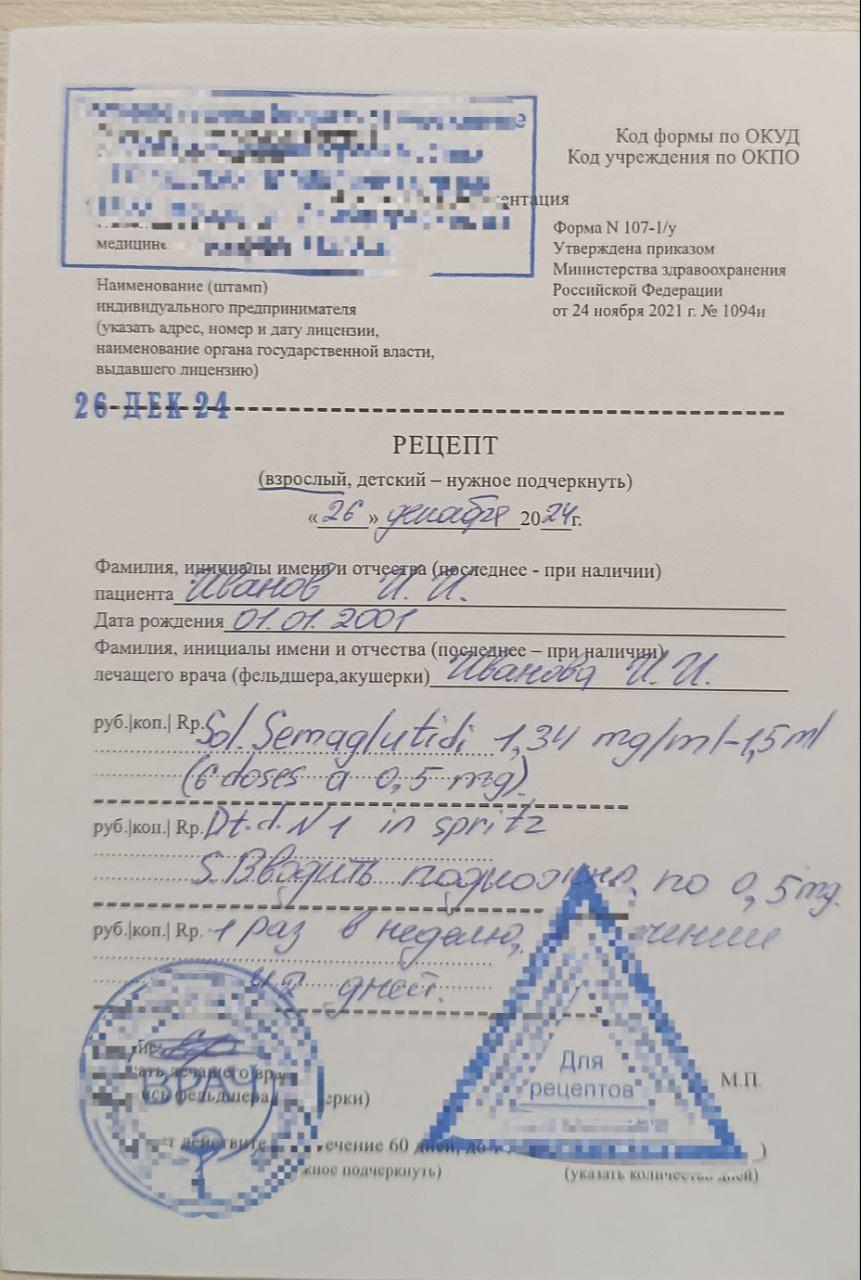 Код формы по ОКУД
Код учреждения по ОКПО
Форма N 107-1/у
Утверждена приказом
Министерства здравоохранения
Российской Федерации
от 24 ноября 2021 г. № 1094н
Наименование (штамп)
индивидуального предпринимателя
(указать адрес, номер и дату лицензии,
наименование органа государственной власти,
выдавшего лицензию)
26 ДЕК 24
РЕЦЕПТ
(взрослый, детский – нужное подчеркнуть)
«26» декабря 2024г.
Фамилия, инициалы имени и отчества (последнее - при наличии)
пациента Иванов И. И.
Дата рождения 01.01.2001
Фамилия, инициалы имени и отчества (последнее – при наличии)
лечащего врача (фельдшера,акушерки) Иванова И. И.
руб.|коп.| Rp. Sol. Semaglutidi 1,34 mg/ml-1,5ml
(6 doses a 0,5 mg).
руб.|коп.| Rp. D.t.d. N 1 in spritz
S. Вводить подкожно по 0,5mg.
руб.|коп.| Rp. 1 раз в неделю,
42 дней.
ВРАЧ
Для
рецептов
М.П.
60 дней, до
подчеркнуть)
(указать количество дней)